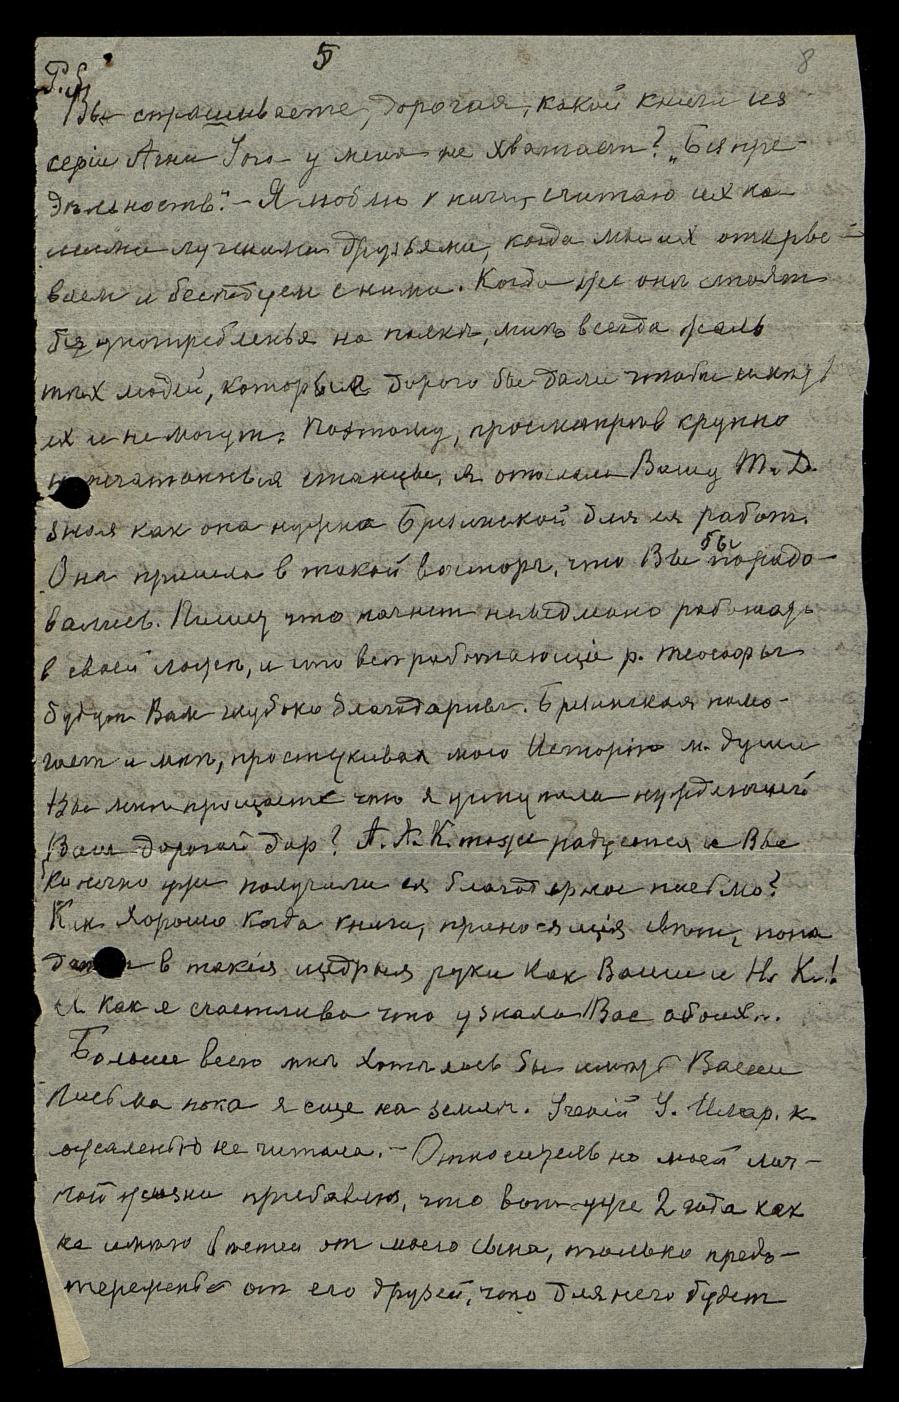 5 8
Вы спрашиваете, дорогая, какой книги из
серiи Агни Iога у меня не хватает? „Безпре-
дѣльность". - Я люблю книги, считаю их
лучшими друзьями, когда мы их откры-
ваем и бесѣдуем с ними. Когда же онѣ стоят
без употребленья на полкѣ, мнѣ всегда жаль
тѣх людей, которые дорого бы дали чтобы имѣть
их и не могут. Поэтому, просмотрѣв крупно
напечатанныя станцы, я отослала Вашу Т. Д.
зная как она нужна Брынской для ея работ.
Она пришла в такой восторг, что Вы бы порадо-
вались. Пишет что начнет немедленно работать
в своей ложѣ, и что всѣ работающiе р. теософы
будут Вам глубоко благодарны. Брынская помо-
гает и мнѣ, простукивая мою Исторiю ч. души
Вы мнѣ прощаете что я уступила нуждающейся
Ваш дорогой дар? А. А. К. тоже радуется и Вы
конечно уже получили ея благодарное письмо?
Как хорошо когда книги, приносящiя свѣт, попа
дают в такiя щедрыя руки как Ваши и Н. К.!
И как я счастлива что узнала Вас обоих.
Больше всего мнѣ хотѣлось бы имѣть Ваши
письма пока я еще на землѣ. Ученiй У. Илар. к
сожаленью не читала. - Относительно моей лич-
ной жизни прибавлю, что вот уже 2 года как
не имѣю вѣстей от моего сына, только предо-
стереженье от его друзей, что для него будет